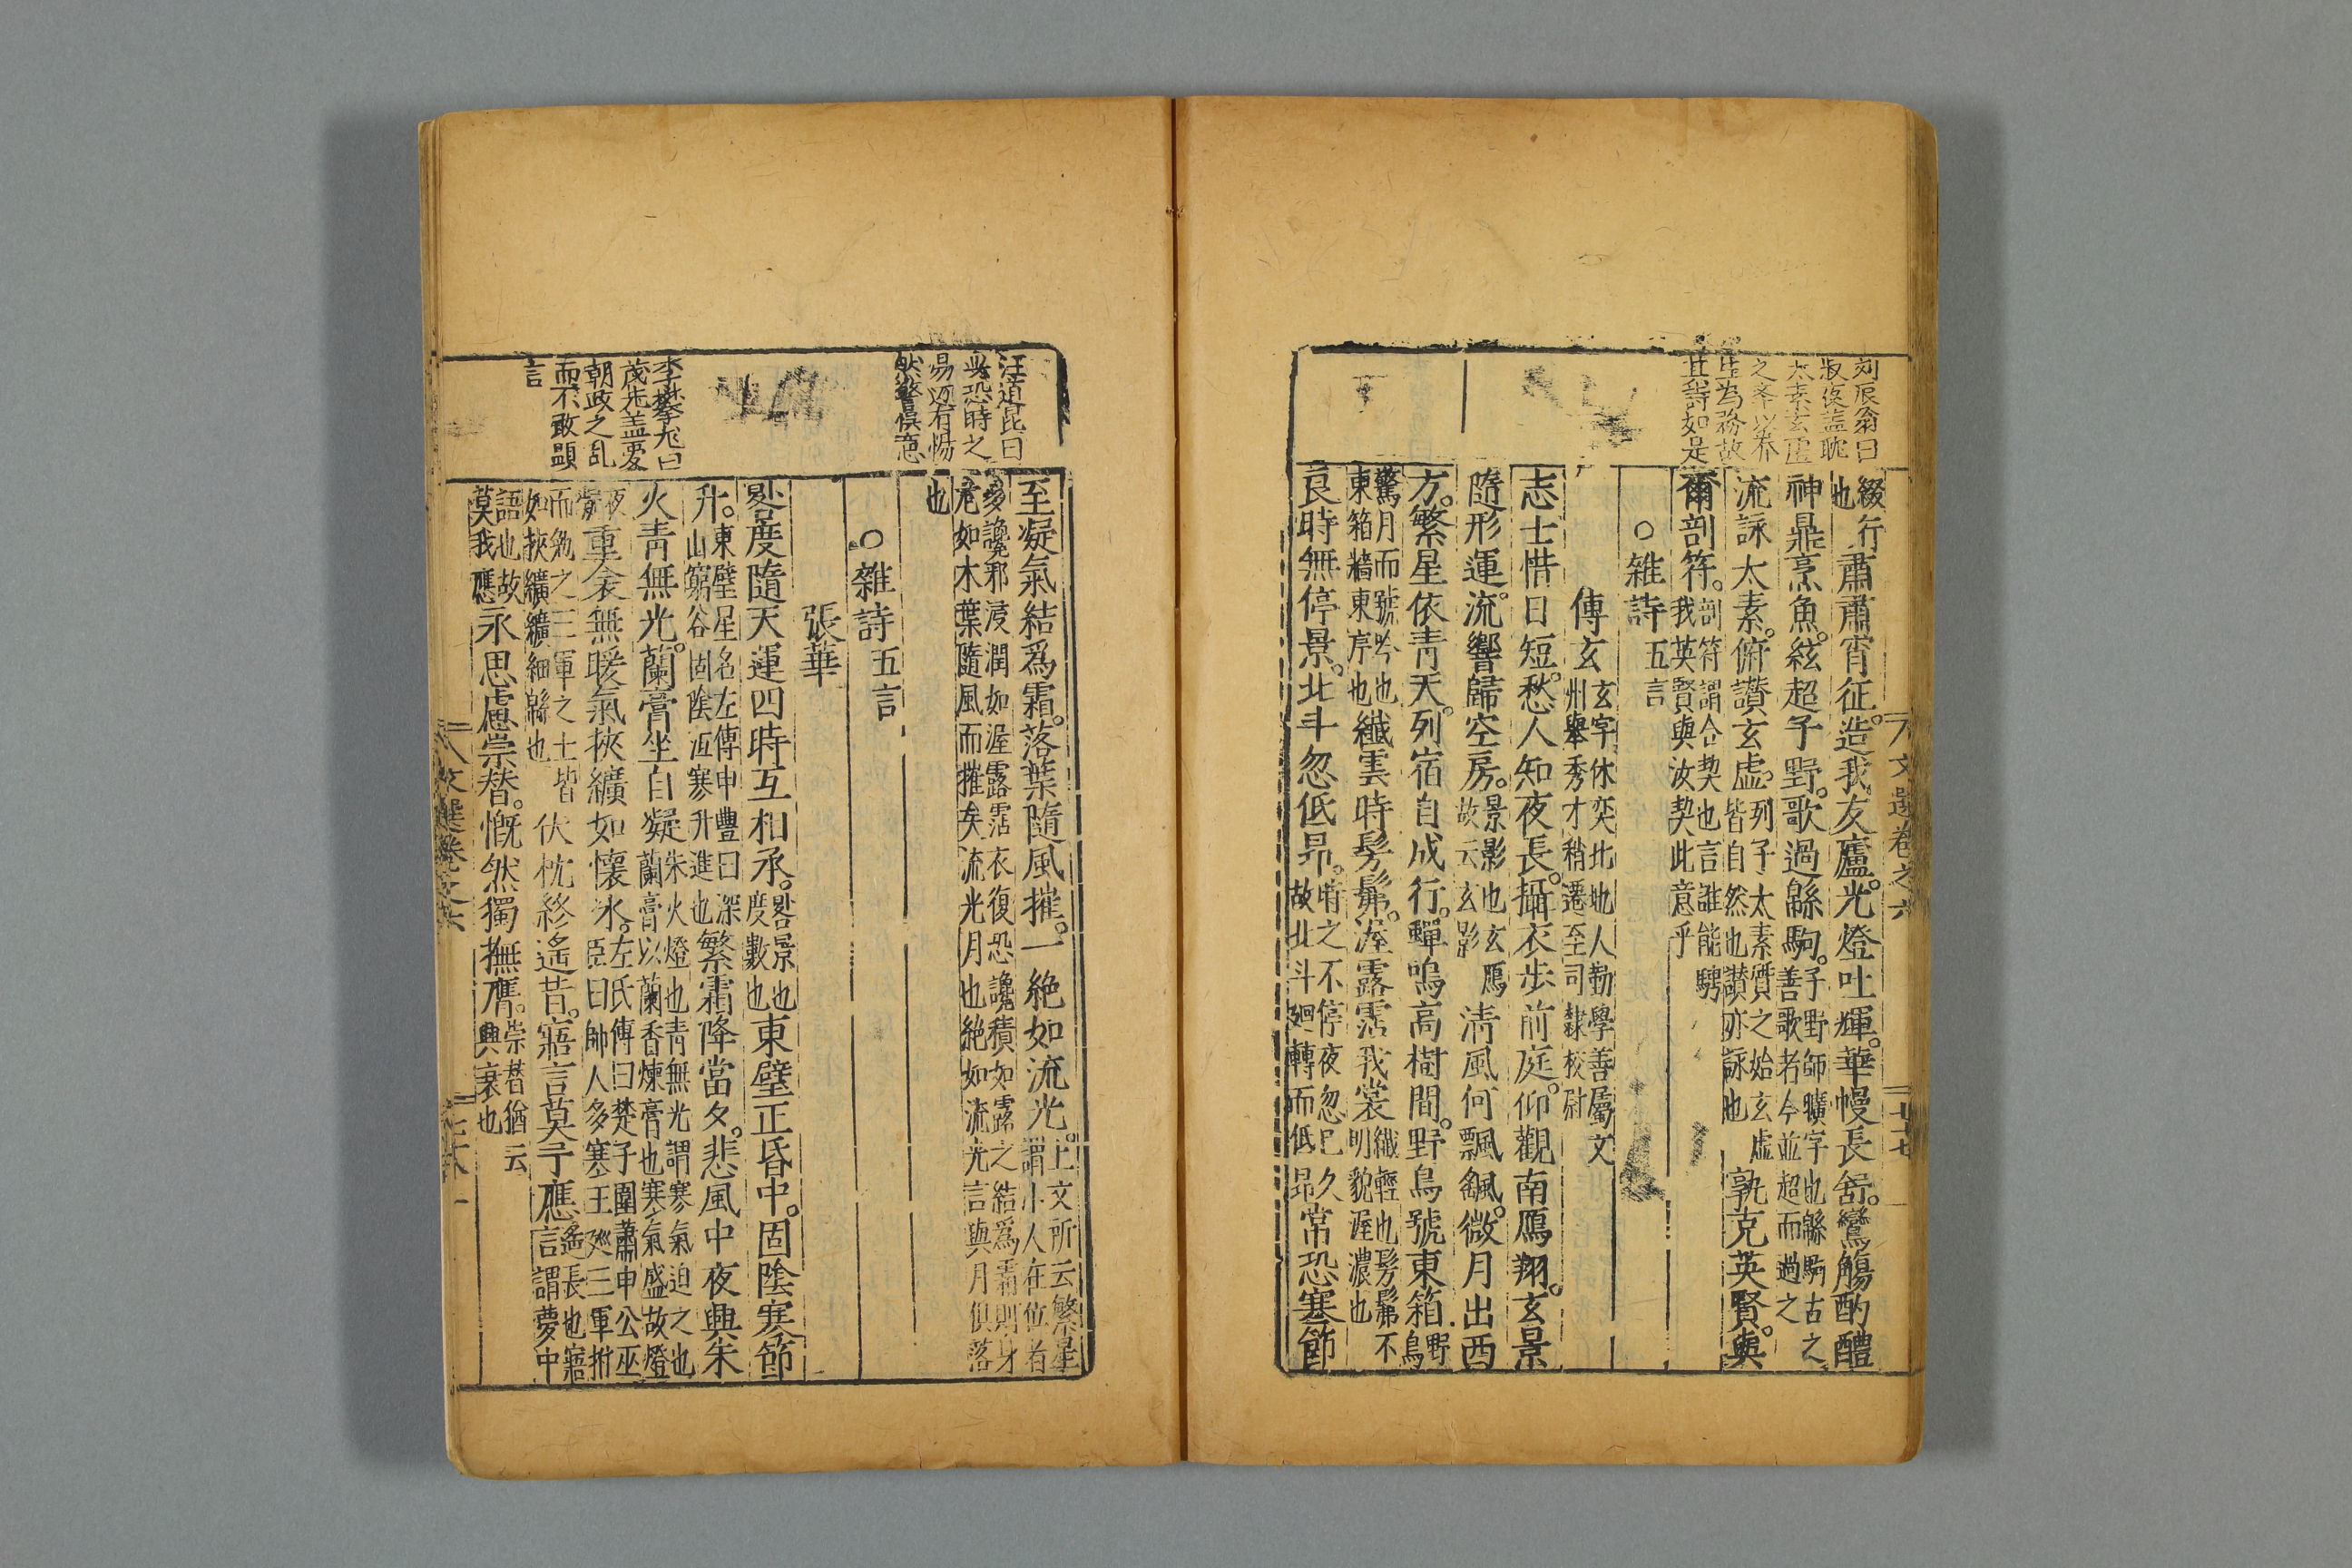 刘辰翁曰
叔夜盖耽
太素玄虛
之奉以养
生为務故
其詩如是
綴行肅肅宵征造我友廬光燈吐輝華幔長舒鸞觴酌醴
也
神鼎烹魚絃超子野歌過緜駒子野師曠字也緜駒古之
善歌者今並超而過之
流詠太素俯讃玄虛列子太素質之始玄虛
皆自然也讃亦詠也孰克英賢與
爾剖符剖符謂合契也言誰能騁
我英賢與汝契此意乎
○雜詩五言
傅玄玄字休奕北地人勤學善屬文
州舉秀才稍遷至司隸校尉
志士惜日短愁人知夜長攝衣步前庭仰觀南鴈翔玄景
隨形運流響歸空房景影也玄鴈
故云玄影清風何飄颻微月出西
方繁星依青天列宿自成行蟬鳴高樹間野鳥號東箱野
鳥
驚月而號吟也
東箱牆東序也纖雲時髣髴渥露霑我裳纖輕也髣髴不
明貌渥濃也
良時無停景北斗忽低昂時之不停夜忽已久
故北斗廻轉而低昂常恐寒節
文選卷之六
二十七
汪道昆曰
吳恐時之
易迈有惕
然警俱意
至凝氣結爲霜落葉隨風摧一絶如流光上文所云繁星
謂小人在位者
多讒邪浸潤如渥露霑衣復恐讒積如露之結爲霜則身
危如木葉隨風而摧矣流光月也絶如流光言與月俱落
也
○雜詩五言
張華
李攀龙曰
茂先盖憂
朝政之乱
而不敢顕
言
晷度隨天運四時互相承晷景也
度數也東壁正昏中固陰寒節
升東壁星名左傳申豊曰深
山窮谷固陰沍寒升進也繁霜降當夕悲風中夜興朱
火青無光蘭膏坐自凝朱火燈也青無光謂寒氣迫之也
蘭膏以蘭香煉膏也寒氣盛故燈
夜
凝重衾無暖氣挾纊如懷冰左氏傳曰楚子圍蕭申公巫
臣曰師人多寒王廵三軍拊
而勉之三軍之士皆
如挾纊纊細緜也伏枕終遙昔寤言莫予應遙長也寤
言謂夢中
語也故
莫我應永思慮崇替慨然獨撫膺崇替猶云
興衰也
文選卷之六